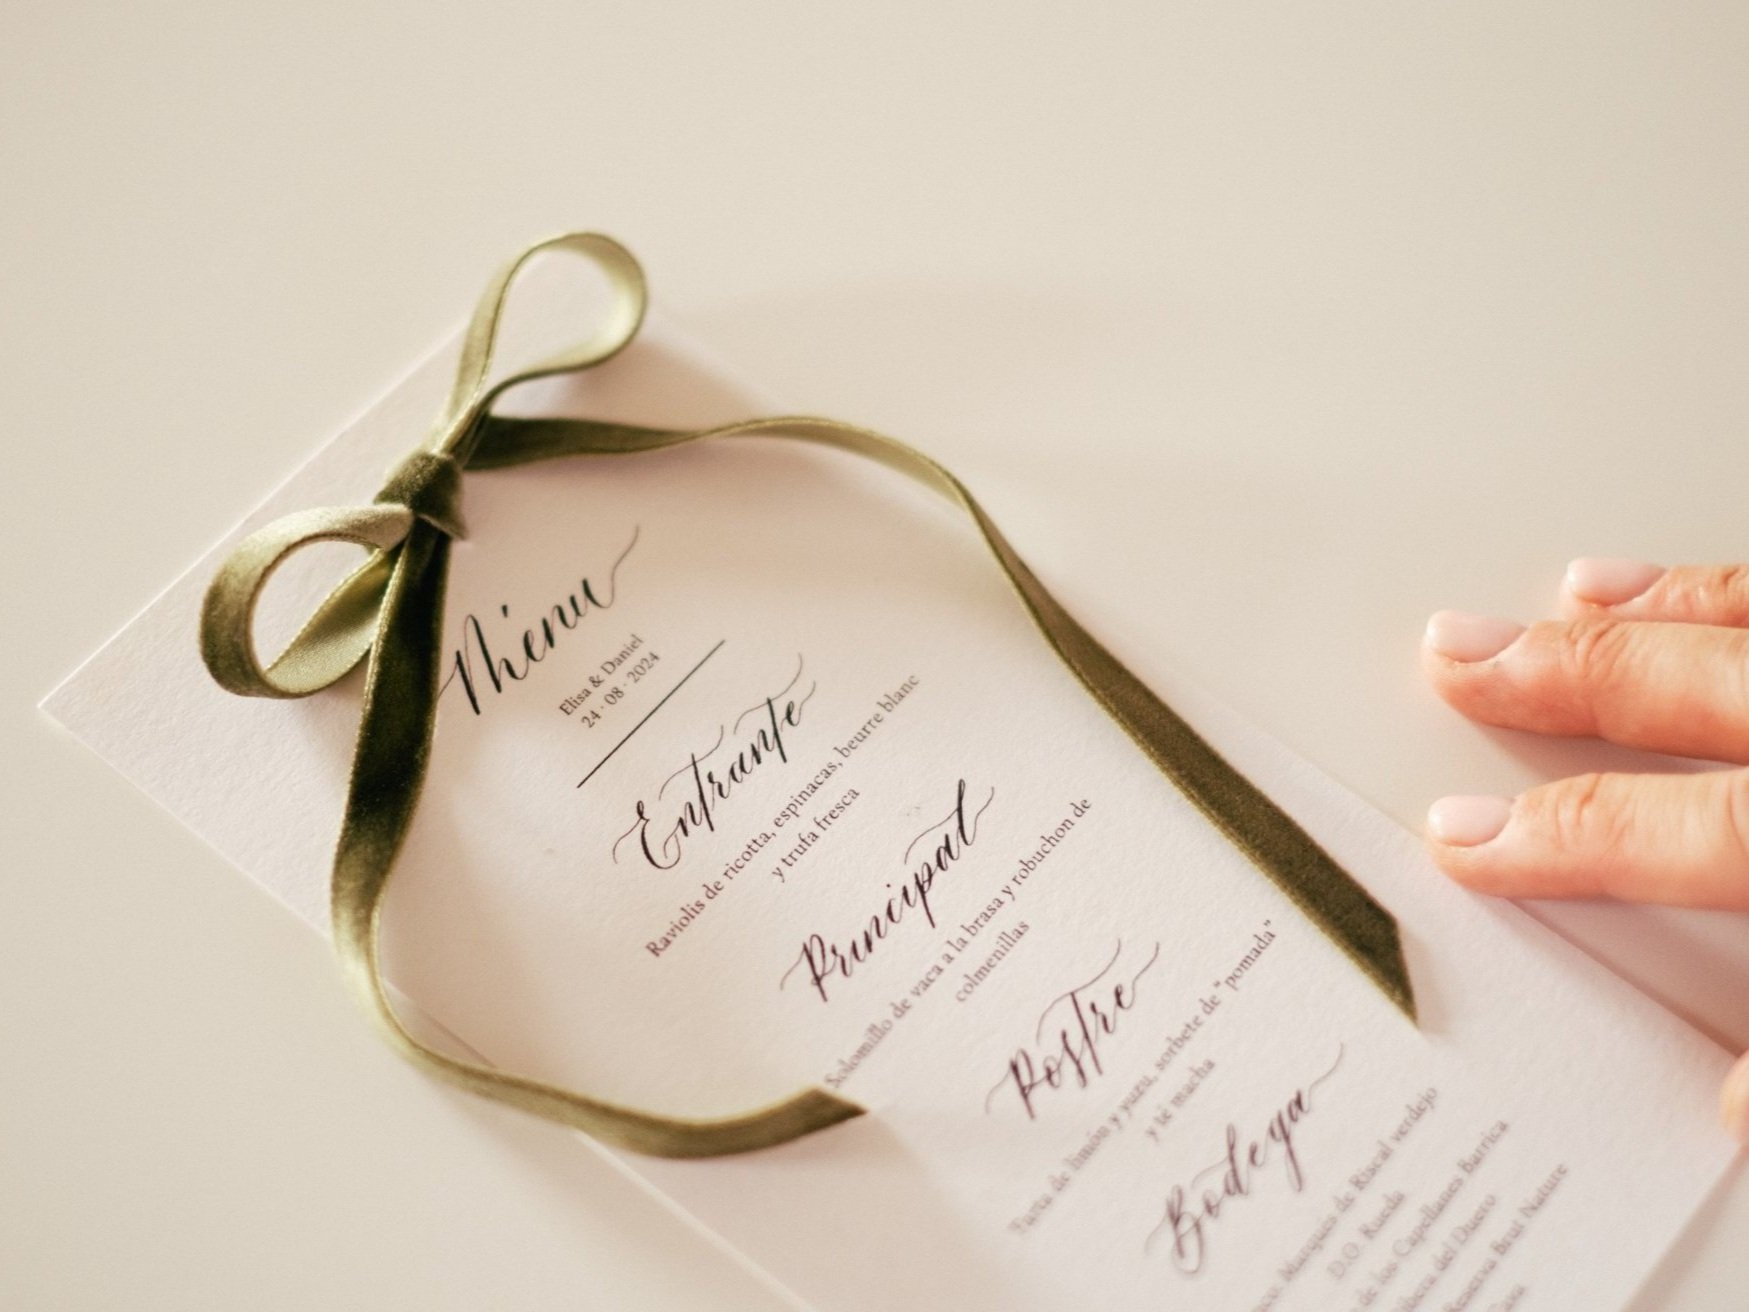 Menu
Elisa & Daniel
24 · 08 · 2024
Entrante
Raviolis de ricotta, espinacas, beurre blanc
y trufa fresca
Principal
Solomillo de vaca a la brasa y robuchon de
colmenillas
Postre
Tarta de limón y yuzu, sorbete de "pomada"
y té macha
Bodega
Marqués de Riscal verdejo
D.O. Rueda
de los Capellanes Barrica
del Duero
Reserva Brut Nature